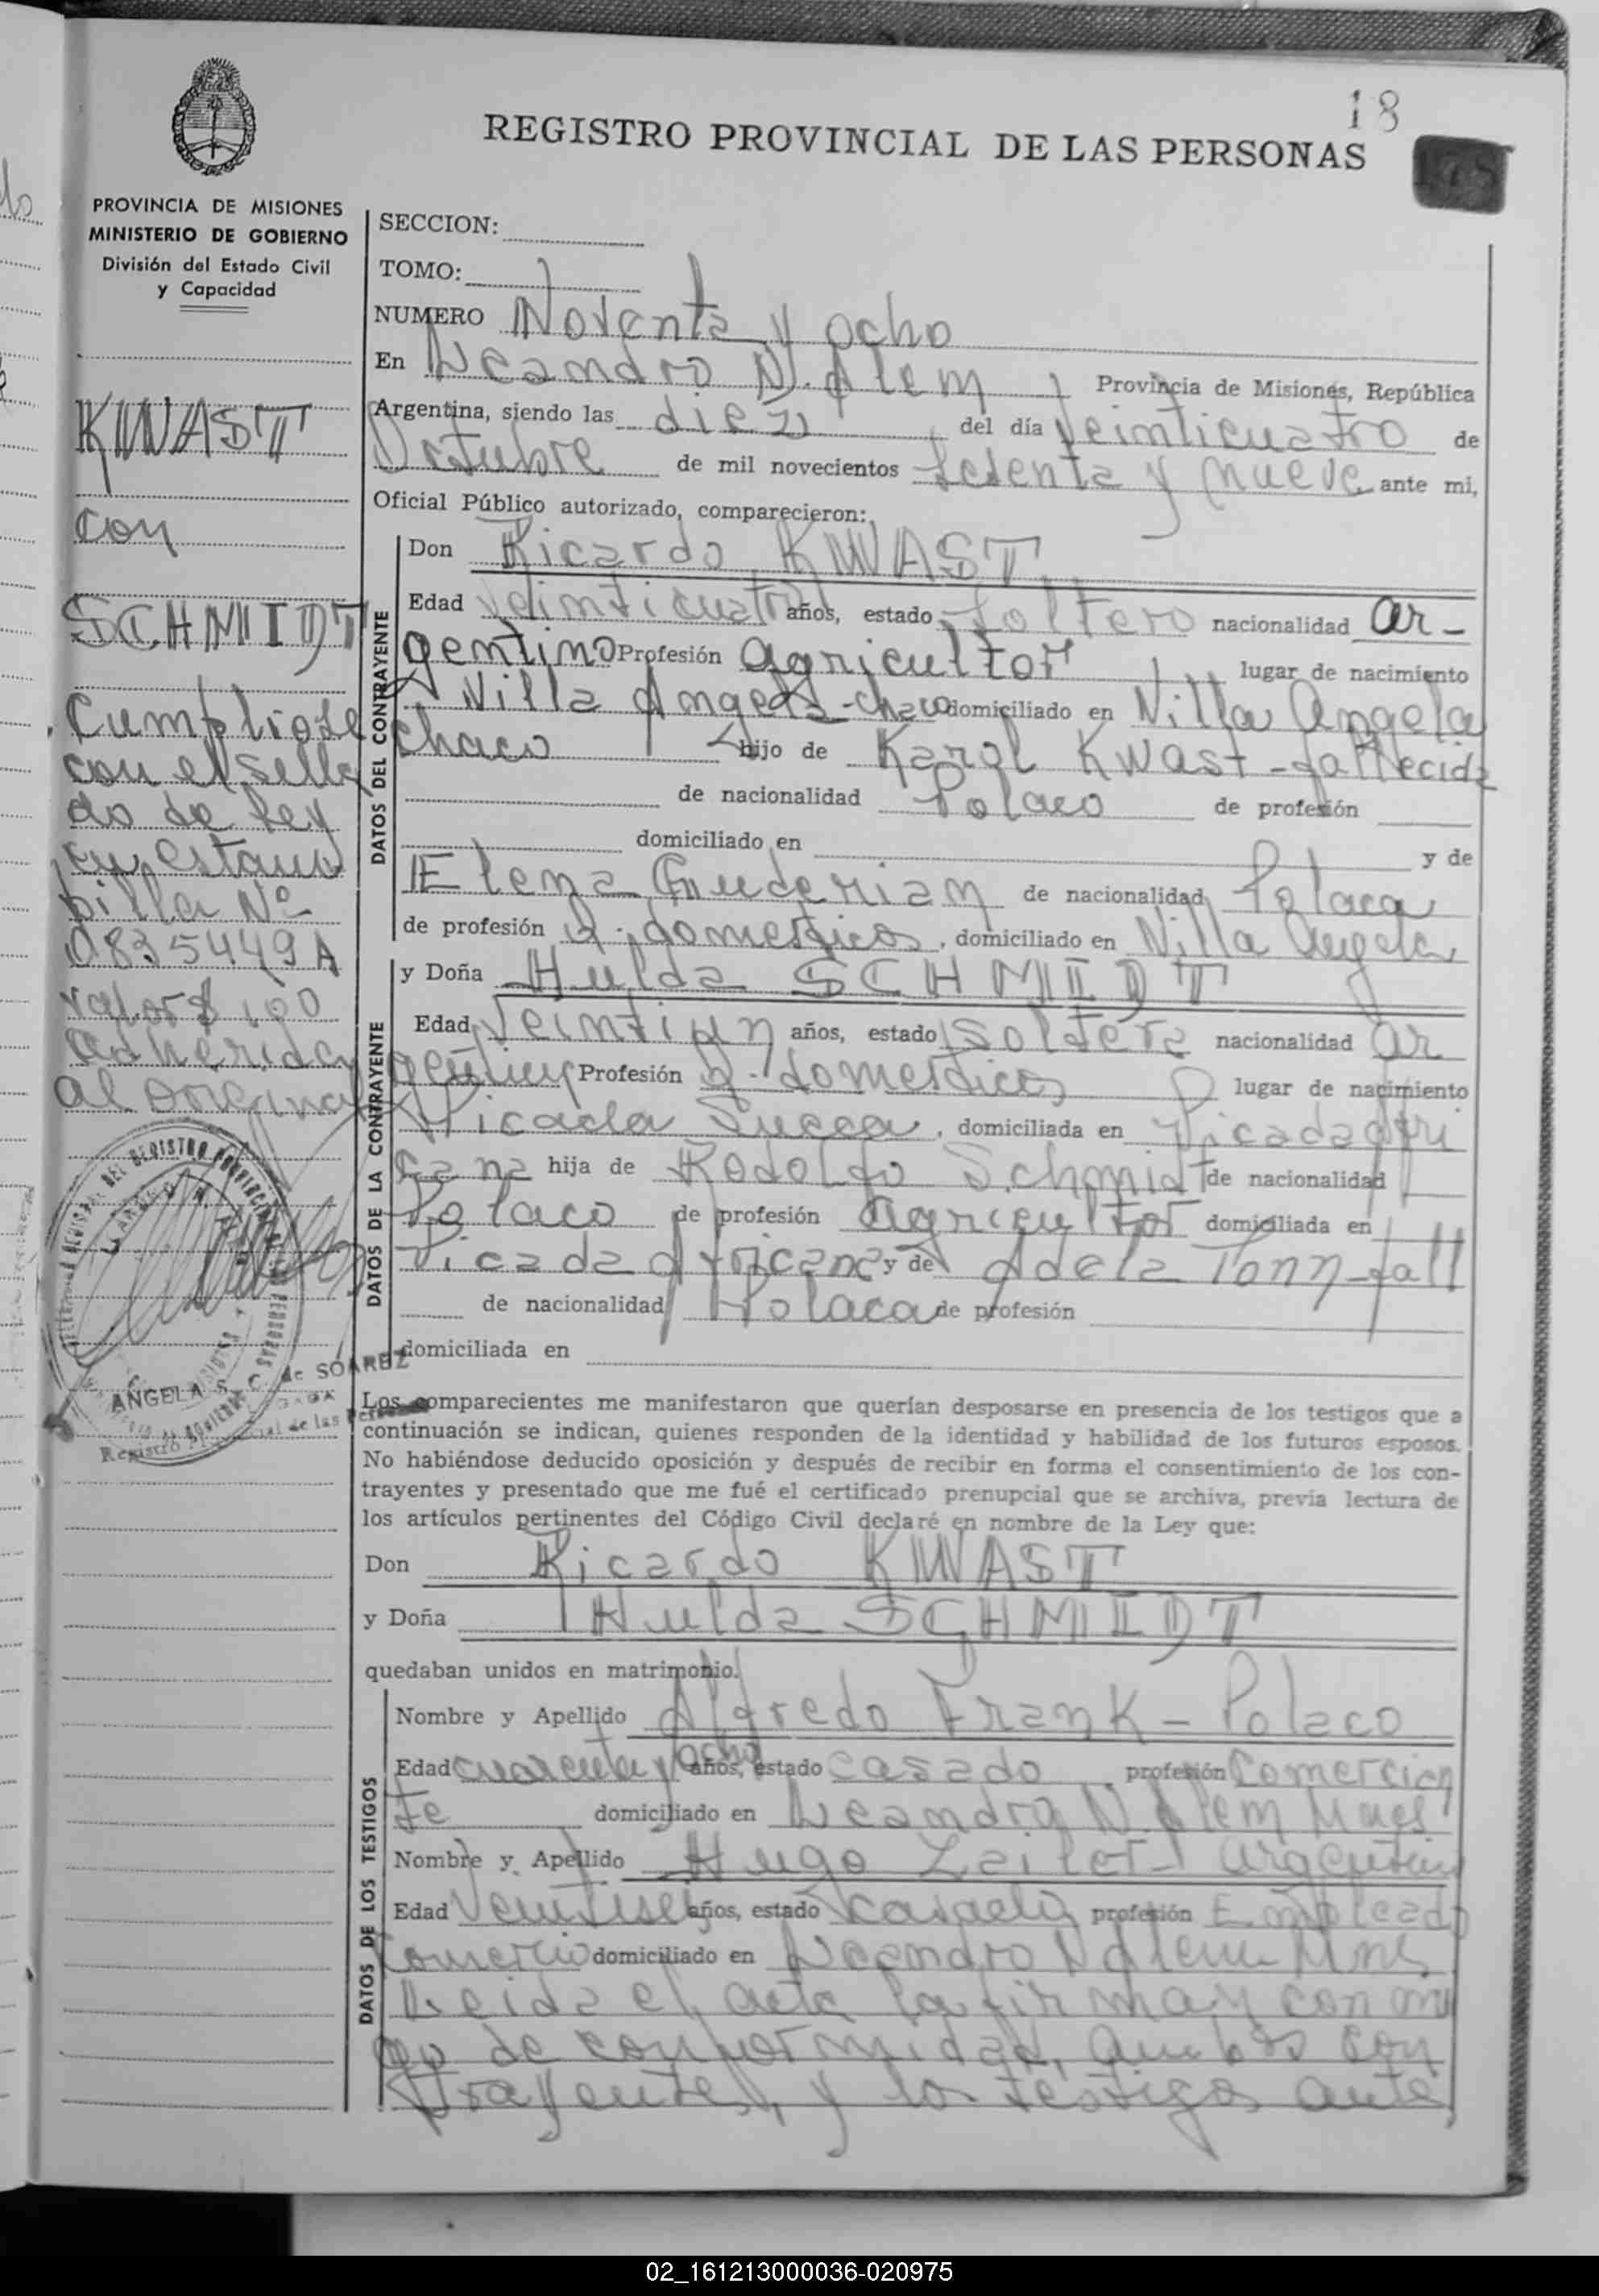 18
REGISTRO PROVINCIAL DE LAS PERSONAS
175
PROVINCIA DE MISIONES
MINISTERIO DE GOBIERNO
División del Estado Civil
y Capacidad
KWAST
con
SCHMIDT
Cumpliose
con el sella
do de ley
en estam
pilla Nº
0835449A
valor $ 100
adherida
al original
ANGELA S. C. de SOAREZ
SECCION:
TOMO:
NUMERO Noventa y ocho
En Leandro N. Alem, Provincia de Misiones, República
Argentina, siendo las diez del día Veinticuatro de
Octubre de mil novecientos setenta y nueve ante mi,
Oficial Público autorizado, comparecieron:
DATOS DEL CONTRAYENTE
Don Ricardo KWAST
Edad veinticuatro años, estado soltero nacionalidad ar-
gentino Profesión agricultor lugar de nacimiento
Villa Angela-chaco domiciliado en Villa Angela
chaco hijo de Karol Kwast-fallecido
de nacionalidad Polaco de profesión
domiciliado en y de
Elena Guderian de nacionalidad Polaca
de profesión Q. domesticos, domiciliado en Villa Angela
DATOS DE LA CONTRAYENTE
y Doña Hulda SCHMIDT
Edad Veintiun años, estado Soltera nacionalidad Ar
gentina Profesión Q. domesticos lugar de nacimiento
Picada Sueca, domiciliada en Picada Afri
cana hija de Rodolfo Schmidt de nacionalidad
Polaco de profesión agricultor domiciliada en
Picada Africana y de Adela Tonn-fall
de nacionalidad Polaca de profesión
domiciliada en
Los comparecientes me manifestaron que querían desposarse en presencia de los testigos que a
continuación se indican, quienes responden de la identidad y habilidad de los futuros esposos.
No habiéndose deducido oposición y después de recibir en forma el consentimiento de los con-
trayentes y presentado que me fué el certificado prenupcial que se archiva, previa lectura de
los artículos pertinentes del Código Civil declaré en nombre de la Ley que:
Don Ricardo KWAST
y Doña Hulda SCHMIDT
quedaban unidos en matrimonio.
DATOS DE LOS TESTIGOS
Nombre y Apellido Alfredo Frank-Polaco
Edad cuarenta y ocho años, estado casado, profesión Comercian
te domiciliado en Leandro N. Alem Mnes.
Nombre y Apellido Hugo Zeiler-argentino
Edad Veintiseis años, estado casado profesión Empleado
Comercio domiciliado en Leandro N Alem Mnes
Leida el acta la firman conmi
go de conformidad, ambos con
trayentes, y los testigos ante,
02_161213000036-020975